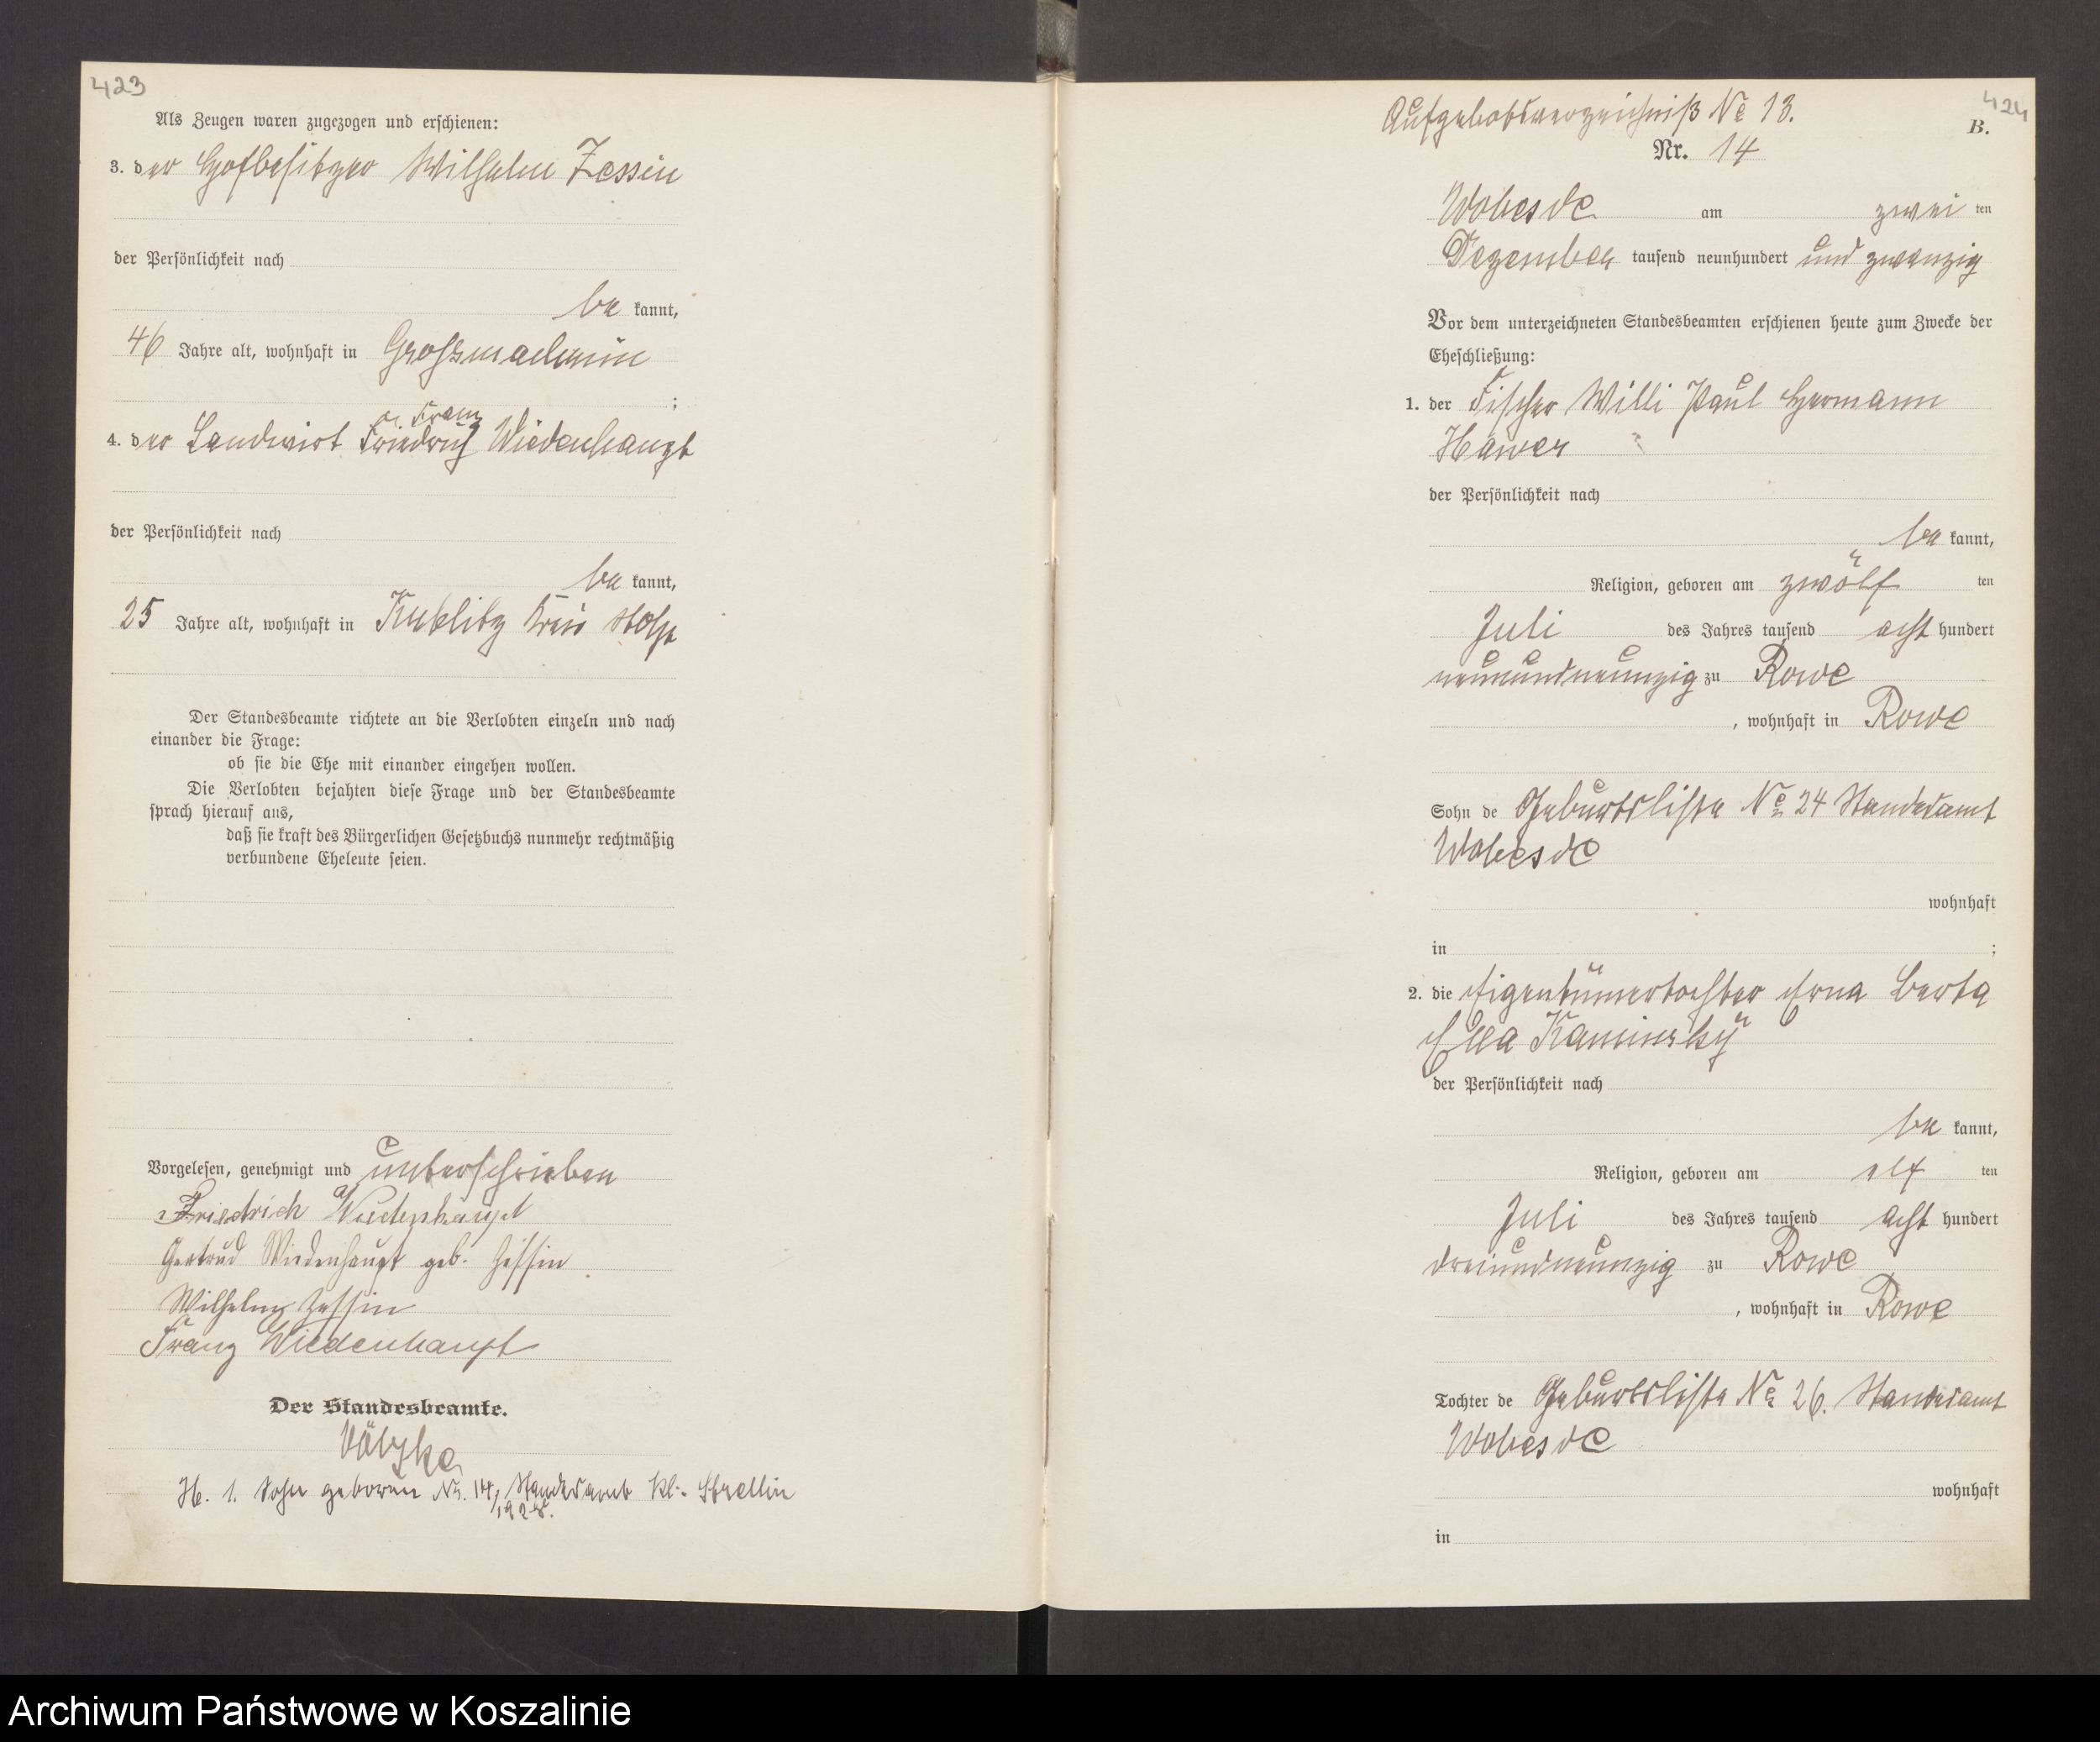 423
Als Zeugen waren zugezogen und erschienen:
3. der Hofbesitzer Wilhelm Zessin
der Persönlichkeit nach
be kannt,
46 Jahre alt, wohnhaft in Großmachmin
;
Franz
4. der Landwirt Friedrich Wiedenhaupt
der Persönlichkeit nach
be kannt,
25 Jahre alt, wohnhaft in Kublitz Kreis Stolp
Der Standesbeamte richtete an die Verlobten einzeln und nach
einander die Frage:
ob sie die Ehe mit einander eingehen wollen.
Die Verlobten bejahten diese Frage und der Standesbeamte
sprach hierauf aus,
daß sie kraft des Bürgerlichen Gesetzbuchs nunmehr rechtmäßig
verbundene Eheleute seien.
Vorgelesen, genehmigt und unterschrieben
Friedrich Wiedenhaupt
Gertrud Wiedenhaupt geb. Zessin
Wilhelm Zessin
Franz Wiedenhaupt
Der Standesbeamte.
1. Sohn geboren Nr. 14, Standesamt Kl. Strellin
424
Aufgebotsverzeichniß No 13.
B.
Nr. 14
Wobesde am zwei ten
Dezember tausend neunhundert und zwanzig
Vor dem unterzeichneten Standesbeamten erschienen heute zum Zwecke der
Eheschließung:
1. der Fischer Willi Paul Hermann
Hawer
der Persönlichkeit nach
be kannt,
Religion, geboren am zwölf ten
Juli des Jahres tausend acht hundert
neunundneunzig zu Rowe
, wohnhaft in Rowe
Sohn de Geburtsliste No 24 Standesamt
Wobesde
wohnhaft
in ;
2. die Eigentümertochter Erna Berta
Ella Kaminsky
der Persönlichkeit nach
be kannt,
Religion, geboren am elf ten
Juli des Jahres tausend acht hundert
dreiundneunzig zu Rowe
, wohnhaft in Rowe
Tochter de Geburtsliste No 26. Standesamt
Wobesde
wohnhaft
in
Archiwum Państwowe w Koszalinie